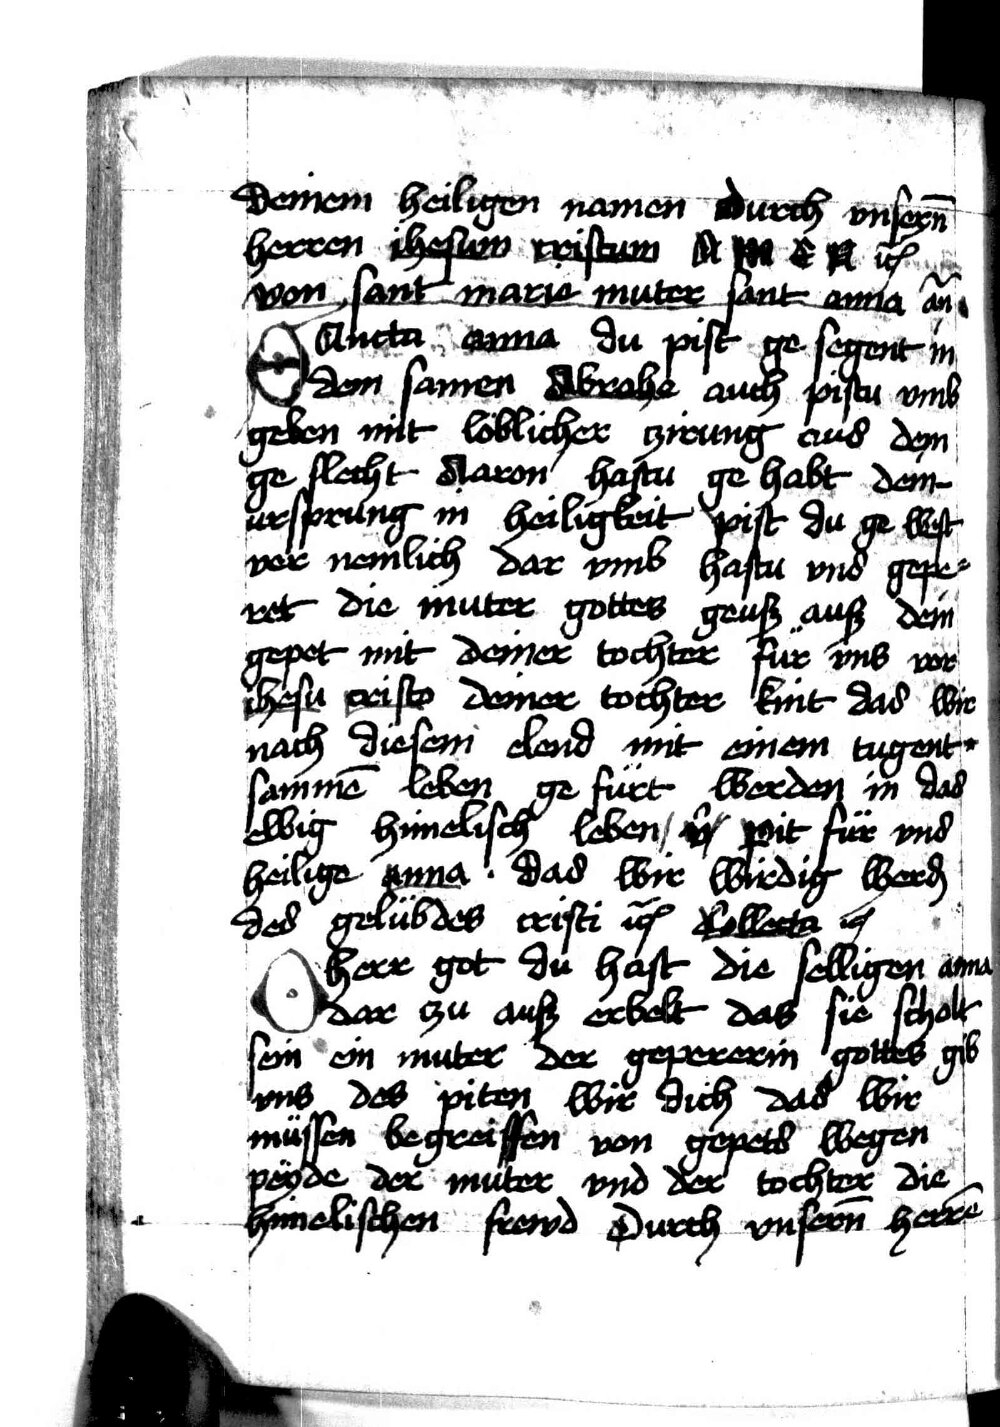 deinem heiligen namen durch vnsern̄
herren ihesum cristum A M E N
von sant marie muter sant anna an̄
SAncta anna du pist ge segent in
dem samen Abrahe auch pistu vmb
geben mit löblicher zirung aus dem
ge slecht Aaron hastu ge habt dein
ursprung in heiligkeit pist du ge west
ver nemlich dar vmb hastu vns gepe⸗
ret die muter gottes geuß auß dein
gepet mit deiner tochter für vns vor
ihesu cristo deiner tochter kint das wir
nach diesem elend mit einem tugent⸗
sammē leben ge fürt werden in das
ewig himelisch leben pit für vns
heilige anna . das wir wirdig werdn̄
des gelübdes cristi Collecta
O herr got du hast die selligen anna
dar zu auß erbelt das sie scholt
sein ein muter der gepererin gottes gib
vns des piten wir dich das wir
müssen begreiffen von gepets wegen
peyde der muter vnd der tochter die
himelischen frewd Durch vnsern̄ herrē